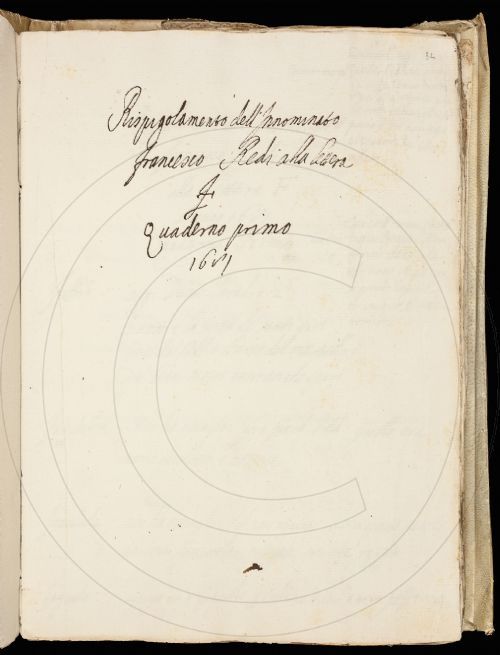 Rispigolamento dell'Innominato
francesco Redi alla lettera
F
Quaderno primo